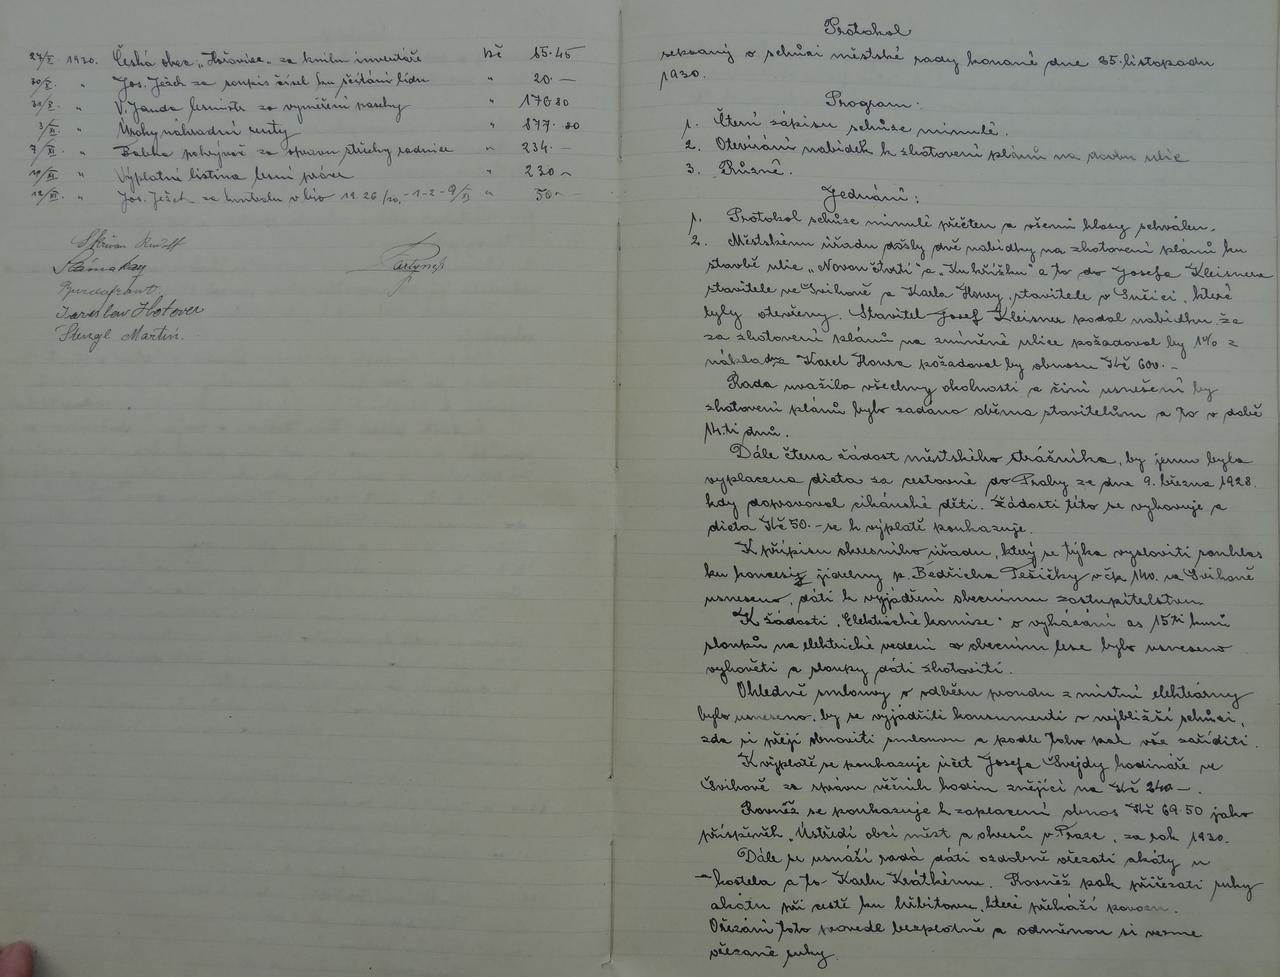 27/X. 1930. Česká obec „Hořovice“ za knihu inventáře Kč 85·45
30/X. „ Jos. Ježek za soupis čísel ku sčítání lidu „ 20.—
31/X. „ V. Janda lesmistr za vyměření paseky „ 176·80
3/XI. „ Úroky náhradní renty „ 877·80
7/XI. „ Babka pokrývač za opravu střechy radnice „ 234.—
10/XI. „ Výplatní listina lesní práce „ 230.—
12/XI. „ Jos. Ježek za kontrolu v bio 19. 26/10,-1-2-9/XI „ 50.—
Skřivan Rudolf
Jaroslav Hotover
Stengl Martin.
Protokol
sepsaný o schůzi městské rady konané dne 25. listopadu
1930.
Program:
1. Čtení zápisu schůze minulé.
2. Otevírání nabídek k zhotovení plánů na stavbu ulic
3. Různé.
Jednání:
1. Protokol schůze minulé přečten a všemi hlasy schválen.
2. Městskému úřadu došly dvě nabídky na zhotovení plánů ku
stavbě ulic „Novou čtvrtí“ a „Ku křížku“ a to od Josefa Kleisnera
stavitele ve Švihově a Karla Houry, stavitele v Lučici, které
byly otevřeny. Stavitel Josef Kleisner podal nabídku že
za zhotovení plánů na zmíněné ulice požadoval by 1% z
nákladu a Karel Houra požadoval by obnosu Kč 600.-
Rada uvážila všechny okolnosti a činí usnešení by
zhotovení plánů bylo zadáno oběma stavitelům a to v době
14.ti dnů.
Dále čtena žádost městského strážníka, by jemu byla
vyplacena dieta za cestovné do Prahy ze dne 9. března 1928.
kdy doprovoval cikánské děti. Žádosti této se vyhovuje a
dieta Kč 50.- se k výplatě poukazuje.
K přípisu okresního úřadu, který se týká vysloviti souhlas
ku koncesi jídelny p. Bedřicha Pešičky v čp. 140. ve Švihově
usneseno, dáti k vyjádření obecnímu zastupitelstvu.
K žádosti „Elektrické komise“ o vykácení as 15ti kusů
sloupů na elektrické vedení v obecním lese bylo usneseno
vyhověti a sloupy dáti zhotoviti.
Ohledně smlouvy o odběru proudu z místní elektrárny
bylo usneseno, by se vyjádřili konsumenti v nejbližší schůzi,
zda si přejí obnoviti smlouvu a podle toho pak vše zaříditi.
K výplatě se poukazuje účet Josefa Švejdy hodináře ve
Švihově za správu věžních hodin znějící na Kč 240.—.
Rovněž se poukazuje k zaplacení obnos Kč 69·50 jako
příspěvek „Ústředí obcí měst a okresů v Praze“, za rok 1930.
Dále se usnáší rada dáti ozdobně ořezati akáty u
kostela a to Karlu Krátkému. Rovněž pak přiřezati suky
akátu při cestě ku hřbitovu, které překáží povozu.
Ořezání toto provede bezplatně a odměnou si vezme
ořezané suky.